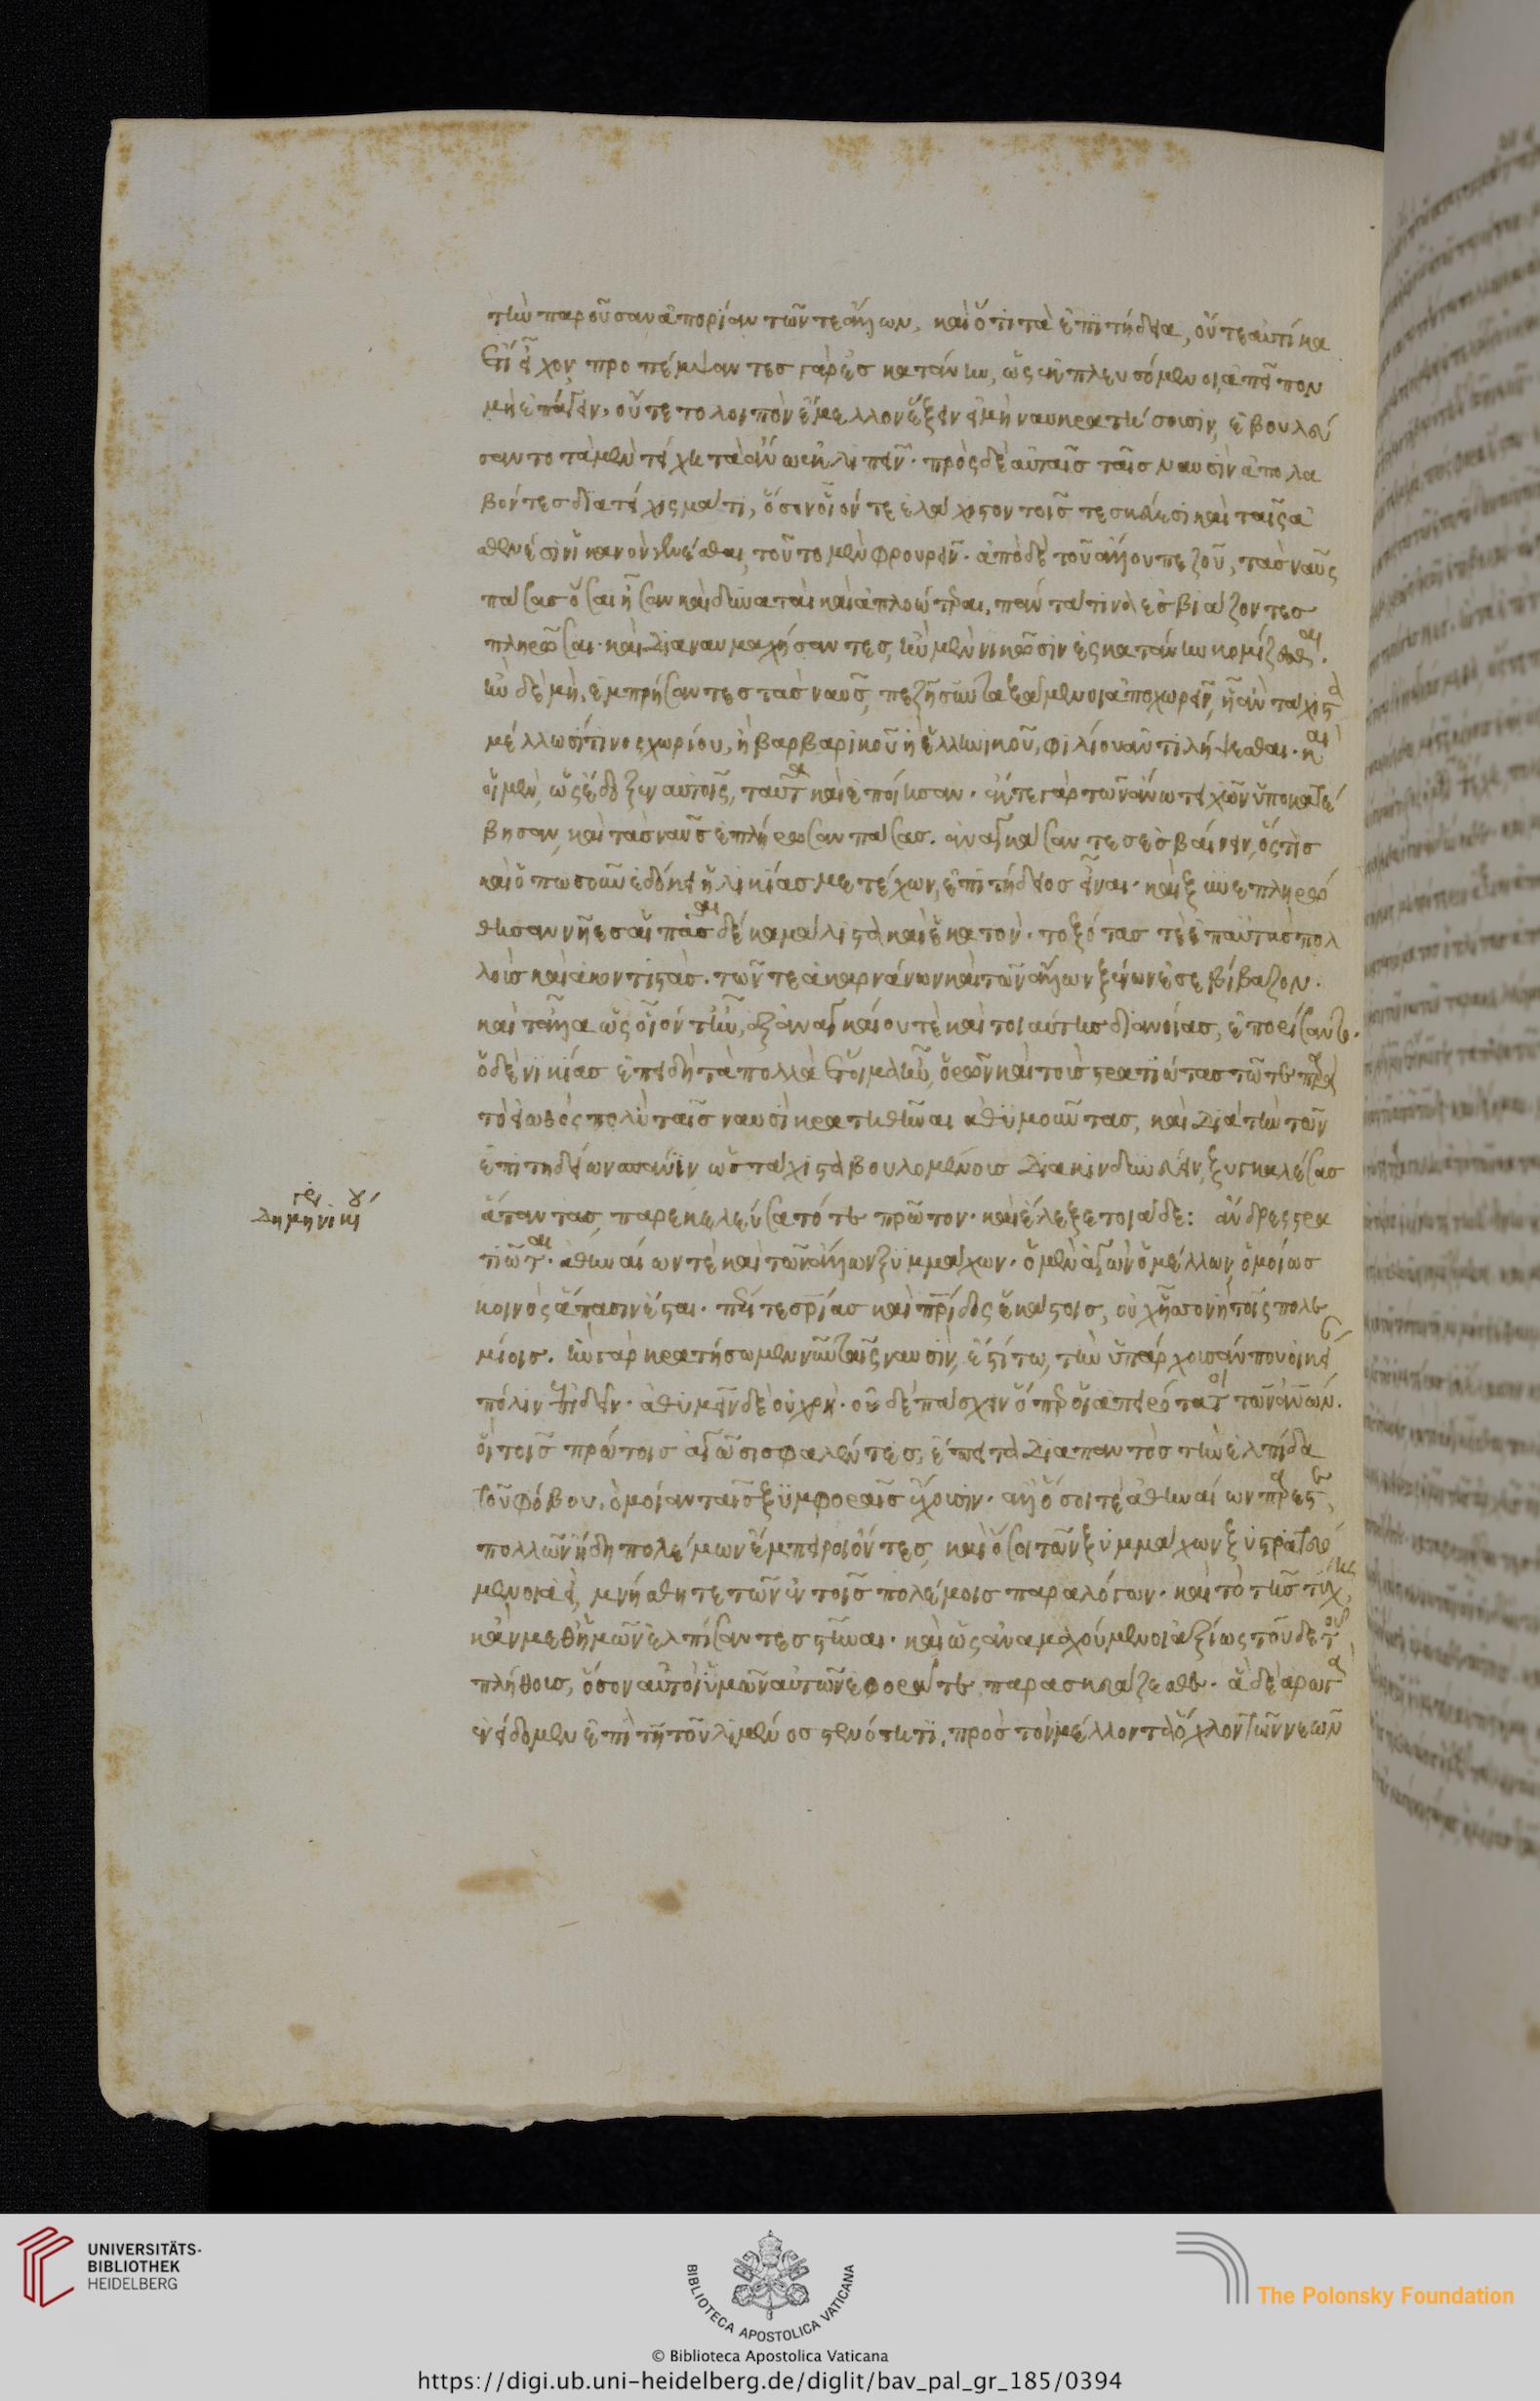 τὴν παροῦσαν ἀπορίαν τῶν τε ἄλλων, καὶ ὅτι τὰ ἐπιτήδεια, οὔτε αὐτίκα
ἔτι εἶχον, προπέμψαντες γὰρ ἐς κατάνην, ὡς ἐκπλευσόμενοι, ἀπεῖπον
μὴ ἐπάγειν, οὔτε τολοιπὸν ἔμελλον ἕξειν εἰ μὴ ναυκρατήσουσιν, ἐβουλεύ
σαντο τὰ μὲν τείχη τὰ ἄνω ἐκλιπεῖν· πρὸς δὲ αὐταῖς ταῖς ναυσὶν ἀπολα
βόντες διατειχίσματι, ὅσον οἷόν τε ἐλάχιστον τοῖς τε σκεύεσι καὶ τοῖς ἀ
σθενέσιν ἱκανὸν γενέσθαι, τοῦτο μὲν φρουρεῖν· ἀπὸ δὲ τοῦ ἄλλου πεζοῦ, τὰς ναῦς
πάσας ὅσαι ἦσαν καὶ δυναταὶ καὶ ἀπλοώτεραι, πάντα τινὰ ἐσβιβάζοντες
πληρῶσαι· καὶ διαναυμαχήσαντες, ἢν μὲν νικῶσιν ἐς κατάνην κομίζεσθαι·
ἢν δὲ μὴ, ἐμπρήσαντες τὰς ναῦς, πεζῇ ξυνταξάμενοι ἀποχωρεῖν, ᾗ ἂν τάχιστα
μέλλωσί τινος χωρίου, ἢ βαρβαρικοῦ ἢ ἑλληνικοῦ, φιλίου ἀντιλήψεσθαι· καὶ
οἱ μὲν, ὡς ἔδοξεν αὐτοῖς, ταῦτα καὶ ἐποίησαν· ἔκ τε γὰρ τῶν ἄνω τειχῶν ὑποκατέ
βησαν, καὶ τὰς ναῦς ἐπλήρωσαν πάσας. ἀναγκάσαντες ἐσβαίνειν, ὅστις
καὶ ὁπωσοῦν ἐδόκει ἡλικίας μετέχων, ἐπιτήδειος εἶναι· καὶ ξυνεπληρώ
θησαν νῆες αἱ πᾶσαι δέκα μάλιστα καὶ ἑκατόν· τοξότας τε ἐπ' αὐτὰς πολ
λοὺς καὶ ἀκοντιστὰς· τῶν τε ἀκαρνάνων καὶ τῶν ἄλλων ξένων ἐσεβίβαζον·
καὶ τἄλλα ὡς οἷόν τ' ἦν, ἐξ ἀναγκαίου τὲ καὶ τοιαύτης διανοίας, ἐπορίσαντο.
ὁ δὲ νικίας ἐπειδὴ τὰ πολλὰ ἕτοιμα ἦν, ὁρῶν καὶ τοὺς στρατιώτας τῷ τε παρὰ
τὸ εἰωθὸς πολὺ ταῖς ναυσὶ κρατηθῆναι ἀθυμοῦντας, καὶ διὰ τὴν τῶν
ἐπιτηδείων σπάνιν ὡς τάχιστα βουλομένους διακινδυνεύειν, ξυγκαλέσας
ἅπαντας, παρεκελεύσατό τε πρῶτον· καὶ ἔλεξε τοιάδε: ἄνδρες στρα
τιῶται· ἀθηναίων τὲ καὶ τῶν ἄλλων ξυμμάχων· ὁ μὲν ἀγὼν ὁ μέλλων, ὁμοίως
κοινὸς ἅπασιν ἔσται· περί τε σωτηρίας καὶ πατρίδος ἑκάστοις, οὐχ ἧσσον ἢ τοῖς πολε
μίοις. ἢν γὰρ κρατήσωμεν νῦν ταῖς ναυσὶν, ἔστι τῳ, τὴν ὑπάρχουσάν που οἰκεί
πόλιν ἐπιδεῖν· ἀθυμεῖν δὲ οὐ χρὴ· οὐδὲ πάσχειν ὅπερ οἱ ἀπειρότατοι τῶν ἀνθρώπων.
οἳ τοῖς πρώτοις ἀγῶσι σφαλέντες, ἔπειτα διαπαντὸς τὴν ἐλπίδα
τοῦ φόβου, ὁμοίαν ταῖς ξυμφοραῖς ἔχουσιν· ἀλλ' ὅσοι τε ἀθηναίων πάρεστε,
πολλῶν ἤδη πολέμων ἔμπειροι ὄντες, καὶ ὅσοι τῶν ξυμμάχων ξυστρατευό
μενοι ἀεὶ, μνήσθητε τῶν ἐν τοῖς πολέμοις παραλόγων· καὶ τὸ τῆς τύχης
κἂν μεθ' ἡμῶν ἐλπίσαντες στῆναι· καὶ ὡς ἀναμαχούμενοι ἀξίως τοῦδε τοῦ
πλήθους, ὅσον αὐτοὶ ὑμῶν αὐτῶν ἐφορᾶτε, παρασκευάζεσθε· ἃ δὲ ἀρωγὰ
ἐνείδομεν ἐπὶ τῇ τοῦ λιμένος στενότητι, πρὸς τὸν μέλλοντα ὄχλον τῶν νεῶν
δημηγορία νικίου
UNIVERSITÄTS-
BIBLIOTHEK
HEIDELBERG
BIBLIOTECA APOSTOLICA VATICANA
The Polonsky Foundation
© Biblioteca Apostolica Vaticana
https://digi.ub.uni-heidelberg.de/diglit/bav_pal_gr_185/0394